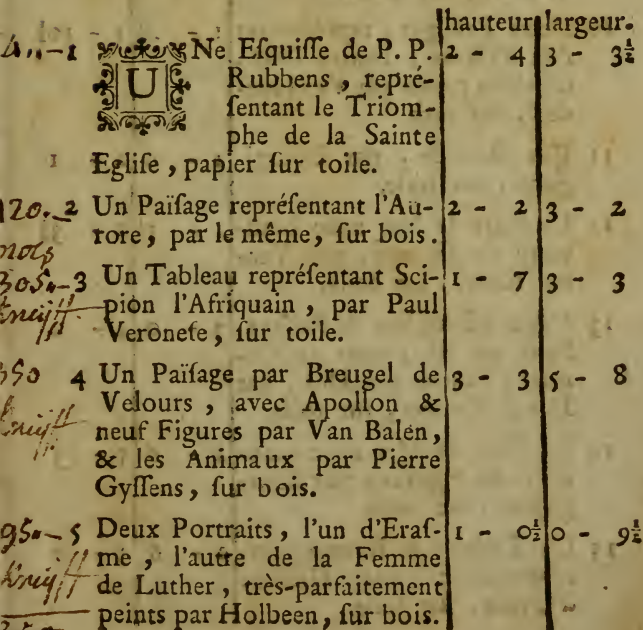 hauteur largeur.
1 UNe Eſquiſſe de P. P. 2 - 4 3 - 3½
Rubbens, repré-
ſentant le Triom-
phe de la Sainte
Egliſe, papier ſur toile.
120. 2 Un Païſage repréſentant l'Au- 2 - 2 3 - 2
rore, par le même, ſur bois.
305.-3 Un Tableau repréſentant Sci- 1 - 7 3 - 3
pion l'Afriquain, par Paul
Veroneſe, ſur toile.
350 4 Un Païſage par Breugel de 3 - 3 5 - 8
Velours, avec Apollon &
neuf Figures par Van Balen,
& les Animaux par Pierre
Gyſſens, ſur bois.
5 Deux Portraits, l'un d'Eraſ- 1 - 0½ 0 - 9½
me, l'autre de la Femme
de Luther, très-parfaitement
peints par Holbeen, ſur bois.